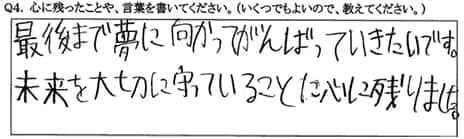 Q4. 心に残ったことや、言葉を書いてください。(いくつでもよいので、教えてください。)
最後まで夢に向かってがんばっていきたいです。
未来を大切に守っていることに心に残りました。